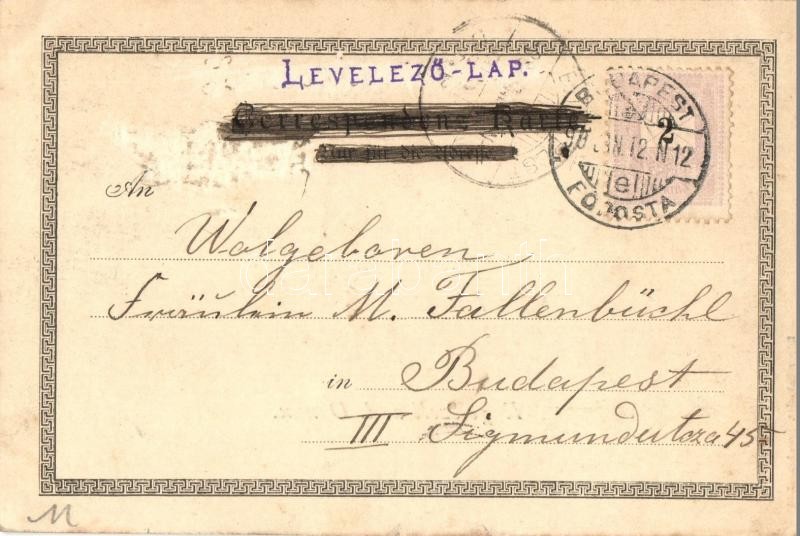 LEVELEZŐ-LAP.
Correspondenz-Karte
Nur für die Adresse
BUDAPEST
2
98 JUN. 12 N 12
e
FŐPOSTA
An
Wolgeboren
Fräulein M. Fallenbüchl
in Budapest
III Sigmundutcza 45
M